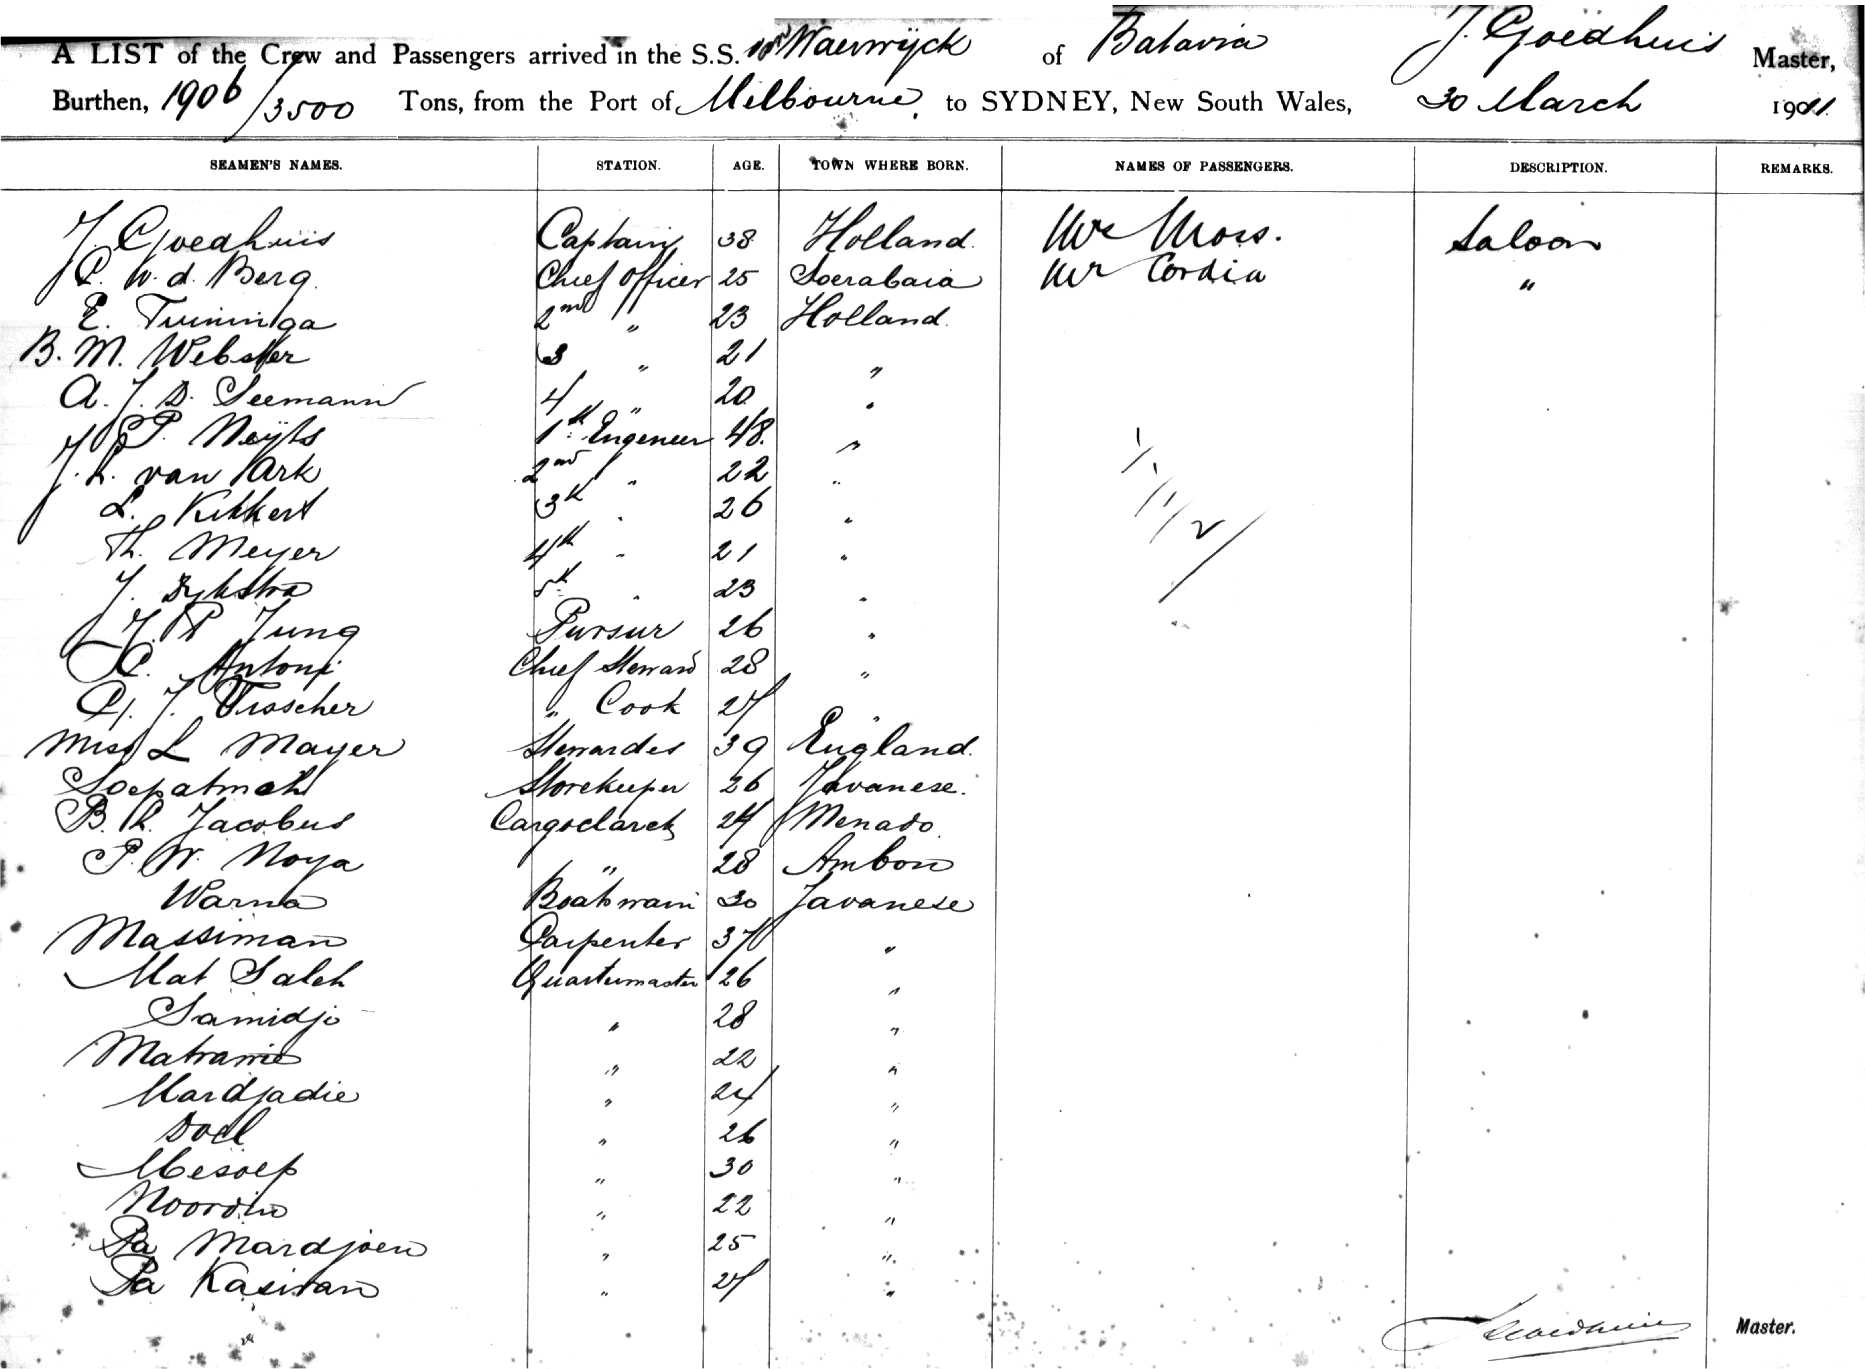 A LIST of the Crew and Passengers arrived in the S.S. van Waerwijck of Batavia J. Goedhuis Master,
Burthen, 1906/3500 Tons, from the Port of Melbourne, to SYDNEY, New South Wales, 30 March 1911.
SEAMEN'S NAMES. STATION. AGE. TOWN WHERE BORN. NAMES OF PASSENGERS. DESCRIPTION. REMARKS.
J. Goedhuis Captain 38 Holland. Mr Moss. Saloon
P. v. d. Berg. Chief Officer 25 Soerabaia Mr Cordia "
E. Tuininga 2nd " 23 Holland.
B. M. Webster 3 " 21 "
A. J. D. Seemann 4 " 20 "
J. P. Neijts 1st Engeneer 48. "
J. H. van Ark 2nd " 22 "
L. Kikkert 3th " 26 "
Th. Meyer 4th " 21 "
J. Dykstra 5th " 23 "
J. P. Jung Pursur 26 "
C. Antoni Chief Steward 28 "
G. J. Visscher " Cook 27 "
Miss L Mayer Stewardes 39 England.
Soepatmah Storekeeper 26 Javanese.
B. H. Jacobus Cargoclarck 24 Menado.
P. W. Noya " 28 Ambon
Warna Boatswain 30 Javanese
Massiman Carpenter 37 "
Mat Saleh Quartermaster 26 "
Samidjo " 28 "
Matrawie " 22 "
Mardjadie " 24 "
Doel " 26 "
Mesoep " 30 "
Noordin " 22 "
Pa Mardjoen " 25 "
Pa Kasiran " 27 "
J Goedhuis Master.